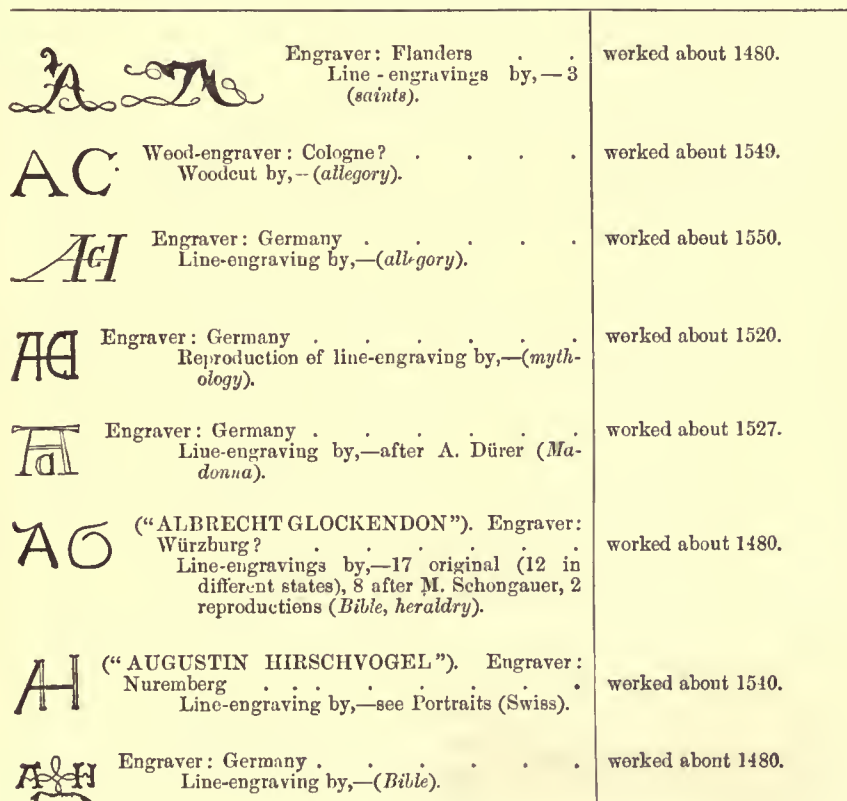 A A Engraver: Flanders . . worked about 1480.
Line-engravings by,—3
(saints).
AC Wood-engraver: Cologne? . . . . worked about 1549.
Woodcut by,—(allegory).
AcH Engraver: Germany . . . . . worked about 1550.
Line-engraving by,—(allegory).
Engraver: Germany . . . . . . worked about 1520.
Reproduction of line-engraving by,—(myth-
ology).
Engraver: Germany . . . . . . worked about 1527.
Line-engraving by,—after A. Dürer (Ma-
donna).
AG (“ALBRECHT GLOCKENDON”). Engraver:
Würzburg? . . . . . . worked about 1480.
Line-engravings by,—17 original (12 in
different states), 8 after M. Schongauer, 2
reproductions (Bible, heraldry).
AH (“AUGUSTIN HIRSCHVOGEL”). Engraver:
Nuremberg . . . . . . . worked about 1540.
Line-engraving by,—see Portraits (Swiss).
A H Engraver: Germany . . . . . . worked about 1480.
Line-engraving by,—(Bible).